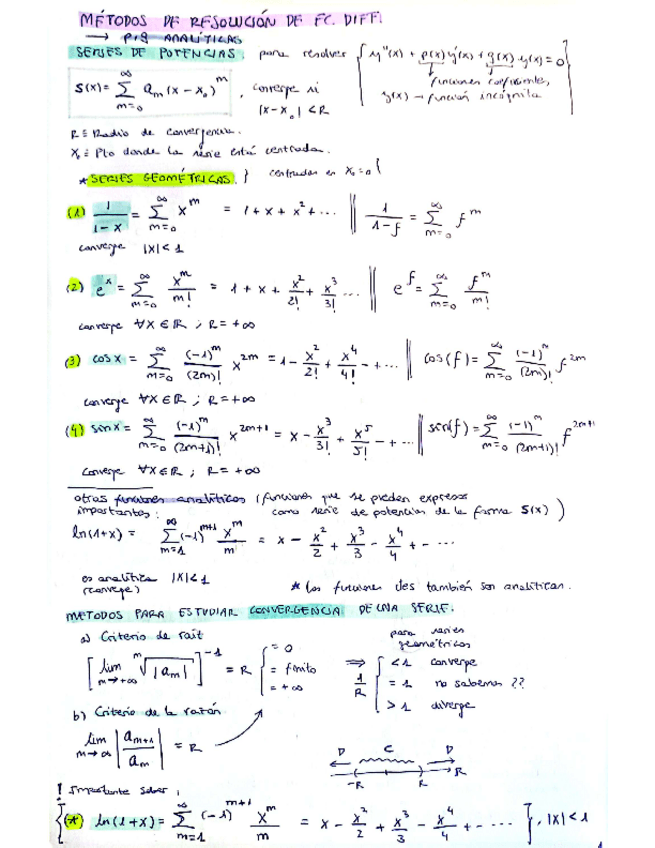 MÉTODOS DE RESOLUCIÓN DE EC. DIFF:
→ p, q ANALÍTICAS
SERIES DE POTENCIAS: para resolver { y''(x) + p(x)y'(x) + q(x)·y(x) = 0
funciones coeficientes,
y(x) → función incógnita }
S(x) = ∑_{m=0}^{∞} a_m (x - x_0)^m , converge si
|x - x_0| < R
R ≡ Radio de convergencia.
X_0 ≡ Pto donde la serie está centrada.
* SERIES GEOMÉTRICAS. } centradas en X_0 = 0 {
(1) 1/(1-x) = ∑_{m=0}^{∞} x^m = 1 + x + x^2 + ... || 1/(1-f) = ∑_{m=0}^{∞} f^m
converge |x| < 1
(2) e^x = ∑_{m=0}^{∞} x^m/m! = 1 + x + x^2/2! + x^3/3! ... || e^f = ∑_{m=0}^{∞} f^m/m!
converge ∀x ∈ ℝ ; R = +∞
(3) cos x = ∑_{m=0}^{∞} (-1)^m/(2m)! x^{2m} = 1 - x^2/2! + x^4/4! - + ... || cos(f) = ∑_{m=0}^{∞} (-1)^m/(2m)! f^{2m}
converge ∀x ∈ ℝ ; R = +∞
(4) sin x = ∑_{m=0}^{∞} (-1)^m/(2m+1)! x^{2m+1} = x - x^3/3! + x^5/5! - + ... || sen(f) = ∑_{m=0}^{∞} (-1)^m/(2m+1)! f^{2m+1}
Converge ∀x ∈ ℝ ; R = +∞
otras funciones analíticas (funciones que se pueden expresar
importantes: como serie de potencias de la forma S(x))
ln(1+x) = ∑_{m=1}^{∞} (-1)^{m+1} x^m/m = x - x^2/2 + x^3/3 - x^4/4 + - ...
es analítica |x| < 1
(converge)
* Las funciones ctes también son analíticas.
METODOS PARA ESTUDIAR CONVERGENCIA DE UNA SERIE:
a) Criterio de raíz
para series
geométricas
[lim_{m→+∞} ᵐ√|a_m|]^{-1} = R { = 0
= finito
= +∞
⇒ 1/R { < 1 converge
= 1 no sabemos ??
> 1 diverge
b) Criterio de la razón
lim_{m→∞} |a_{m+1}/a_m| = R
D C D
-R R R
! Importante saber:
{(*) ln(1+x) = ∑_{m=1}^{∞} (-1)^{m+1} x^m/m = x - x^2/2 + x^3/3 - x^4/4 + - ... }, |x| < 1
1